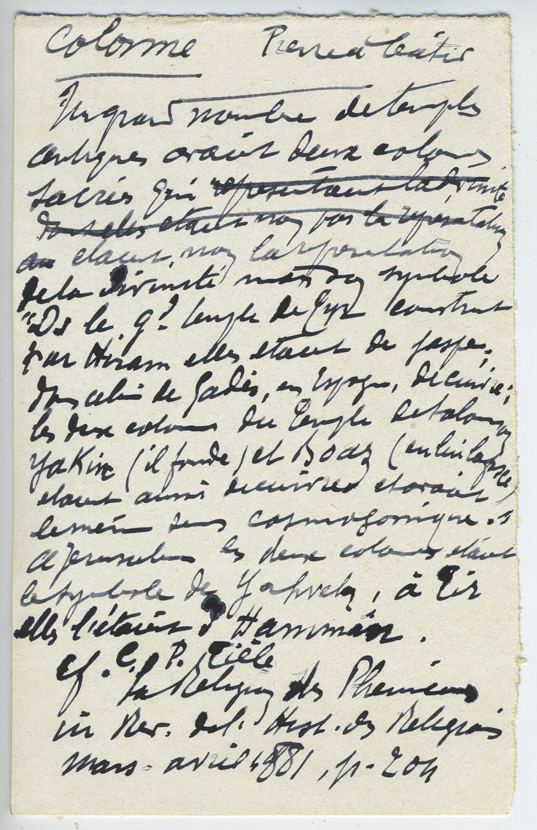 colonne Pierre à bâtir
Un grand nombre de temples
antiques avait deux colonnes
sacrées qui représentaient la divinité
dont elles étaient non pas la représentation
étaient, non la représentation
de la Divinité mais son symbole
"Ds le gd temple de Tyr construit
par Hiram elles étaient de jaspe,
dans celui de Gadès, en Espagne, de cuivre ;
les deux colonnes du Temple de Salomon
Yakin (il fonde) et Boaz (en lui la force)
étaient aussi de cuivre et avaient
le même sens cosmogonique. à
Jérusalem les deux colonnes étaient
le symbole de Yahveh, à Tir
elles l'étaient d'Hammân.
cf. C. P. Tièle
La Religion des Phéniciens
in Rev. de l'Hist. des Religions
mars-avril 1881, p. 204